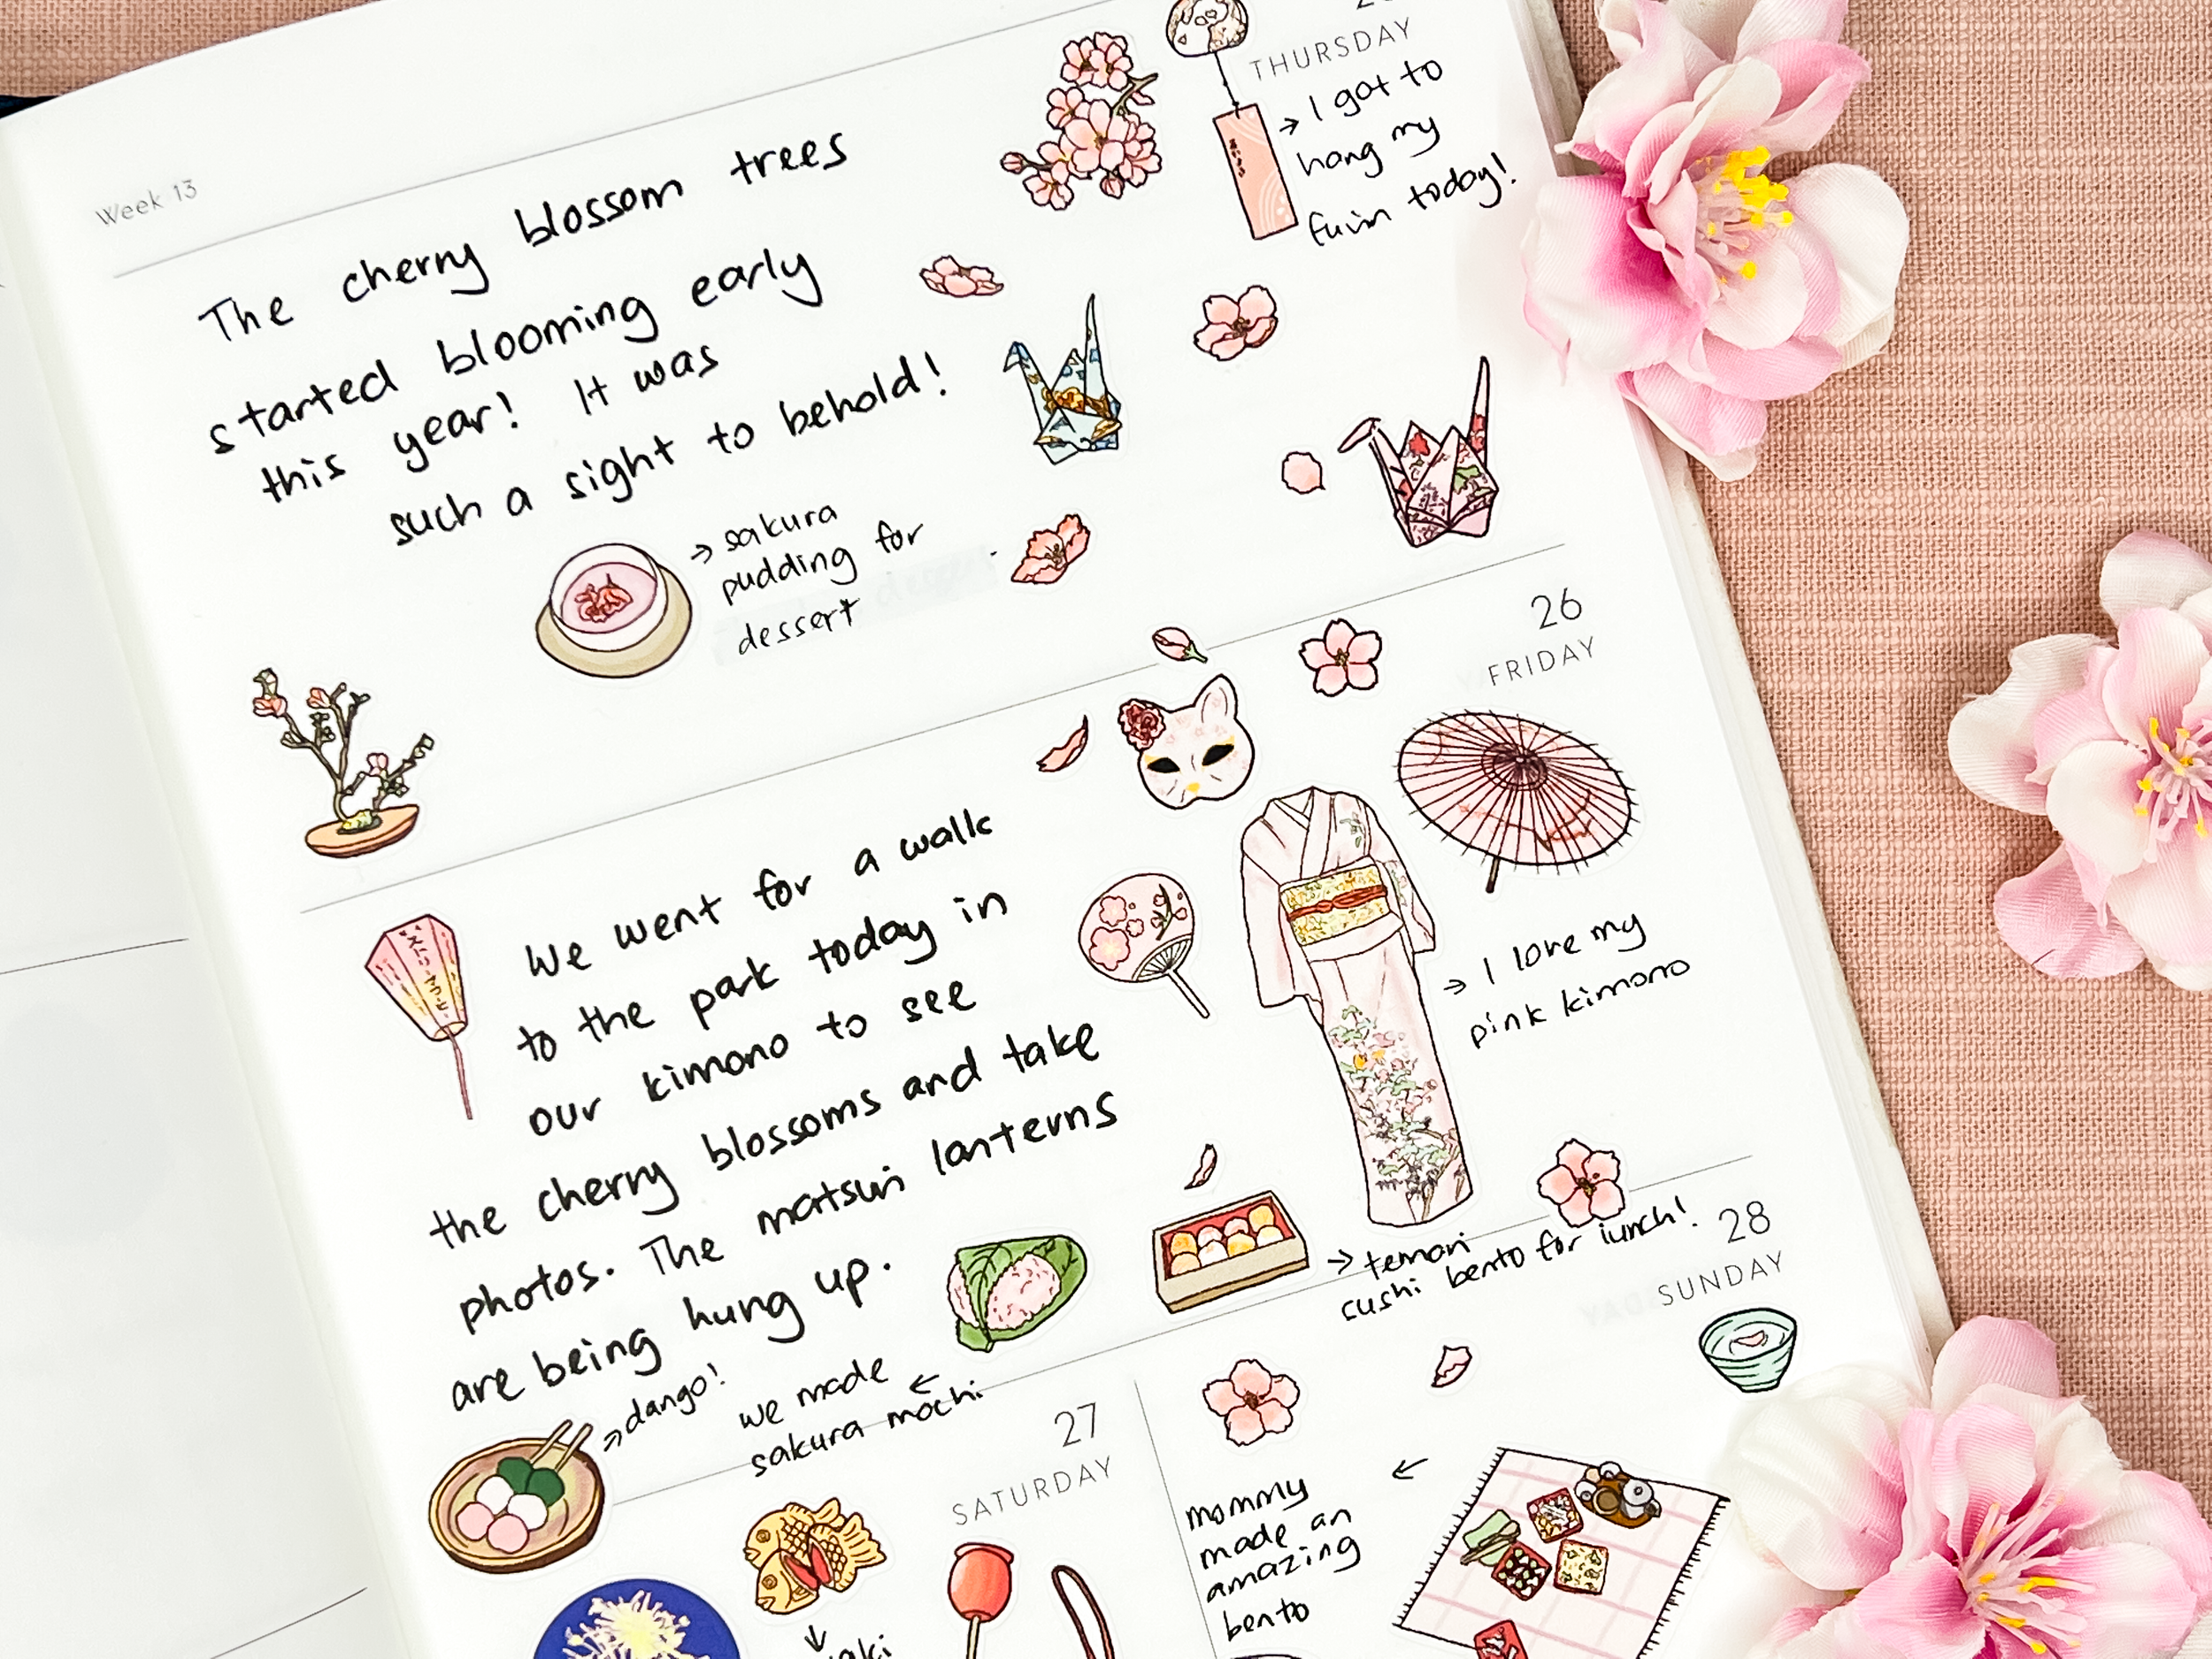 Week 13
THURSDAY
The cherry blossom trees
started blooming early
this year! It was
such a sight to behold!
→ I got to
hang my
fuirin today!
→ sakura
pudding for
dessert
26
FRIDAY
We went for a walk
to the park today in
our kimono to see
the cherry blossoms and take
photos. The matsuri lanterns
are being hung up.
→ I love my
pink kimono
→ temari
sushi bento for lunch!
→ dango!
we made ←
sakura mochi
27
SATURDAY
28
SUNDAY
mommy ←
made an
amazing
bento